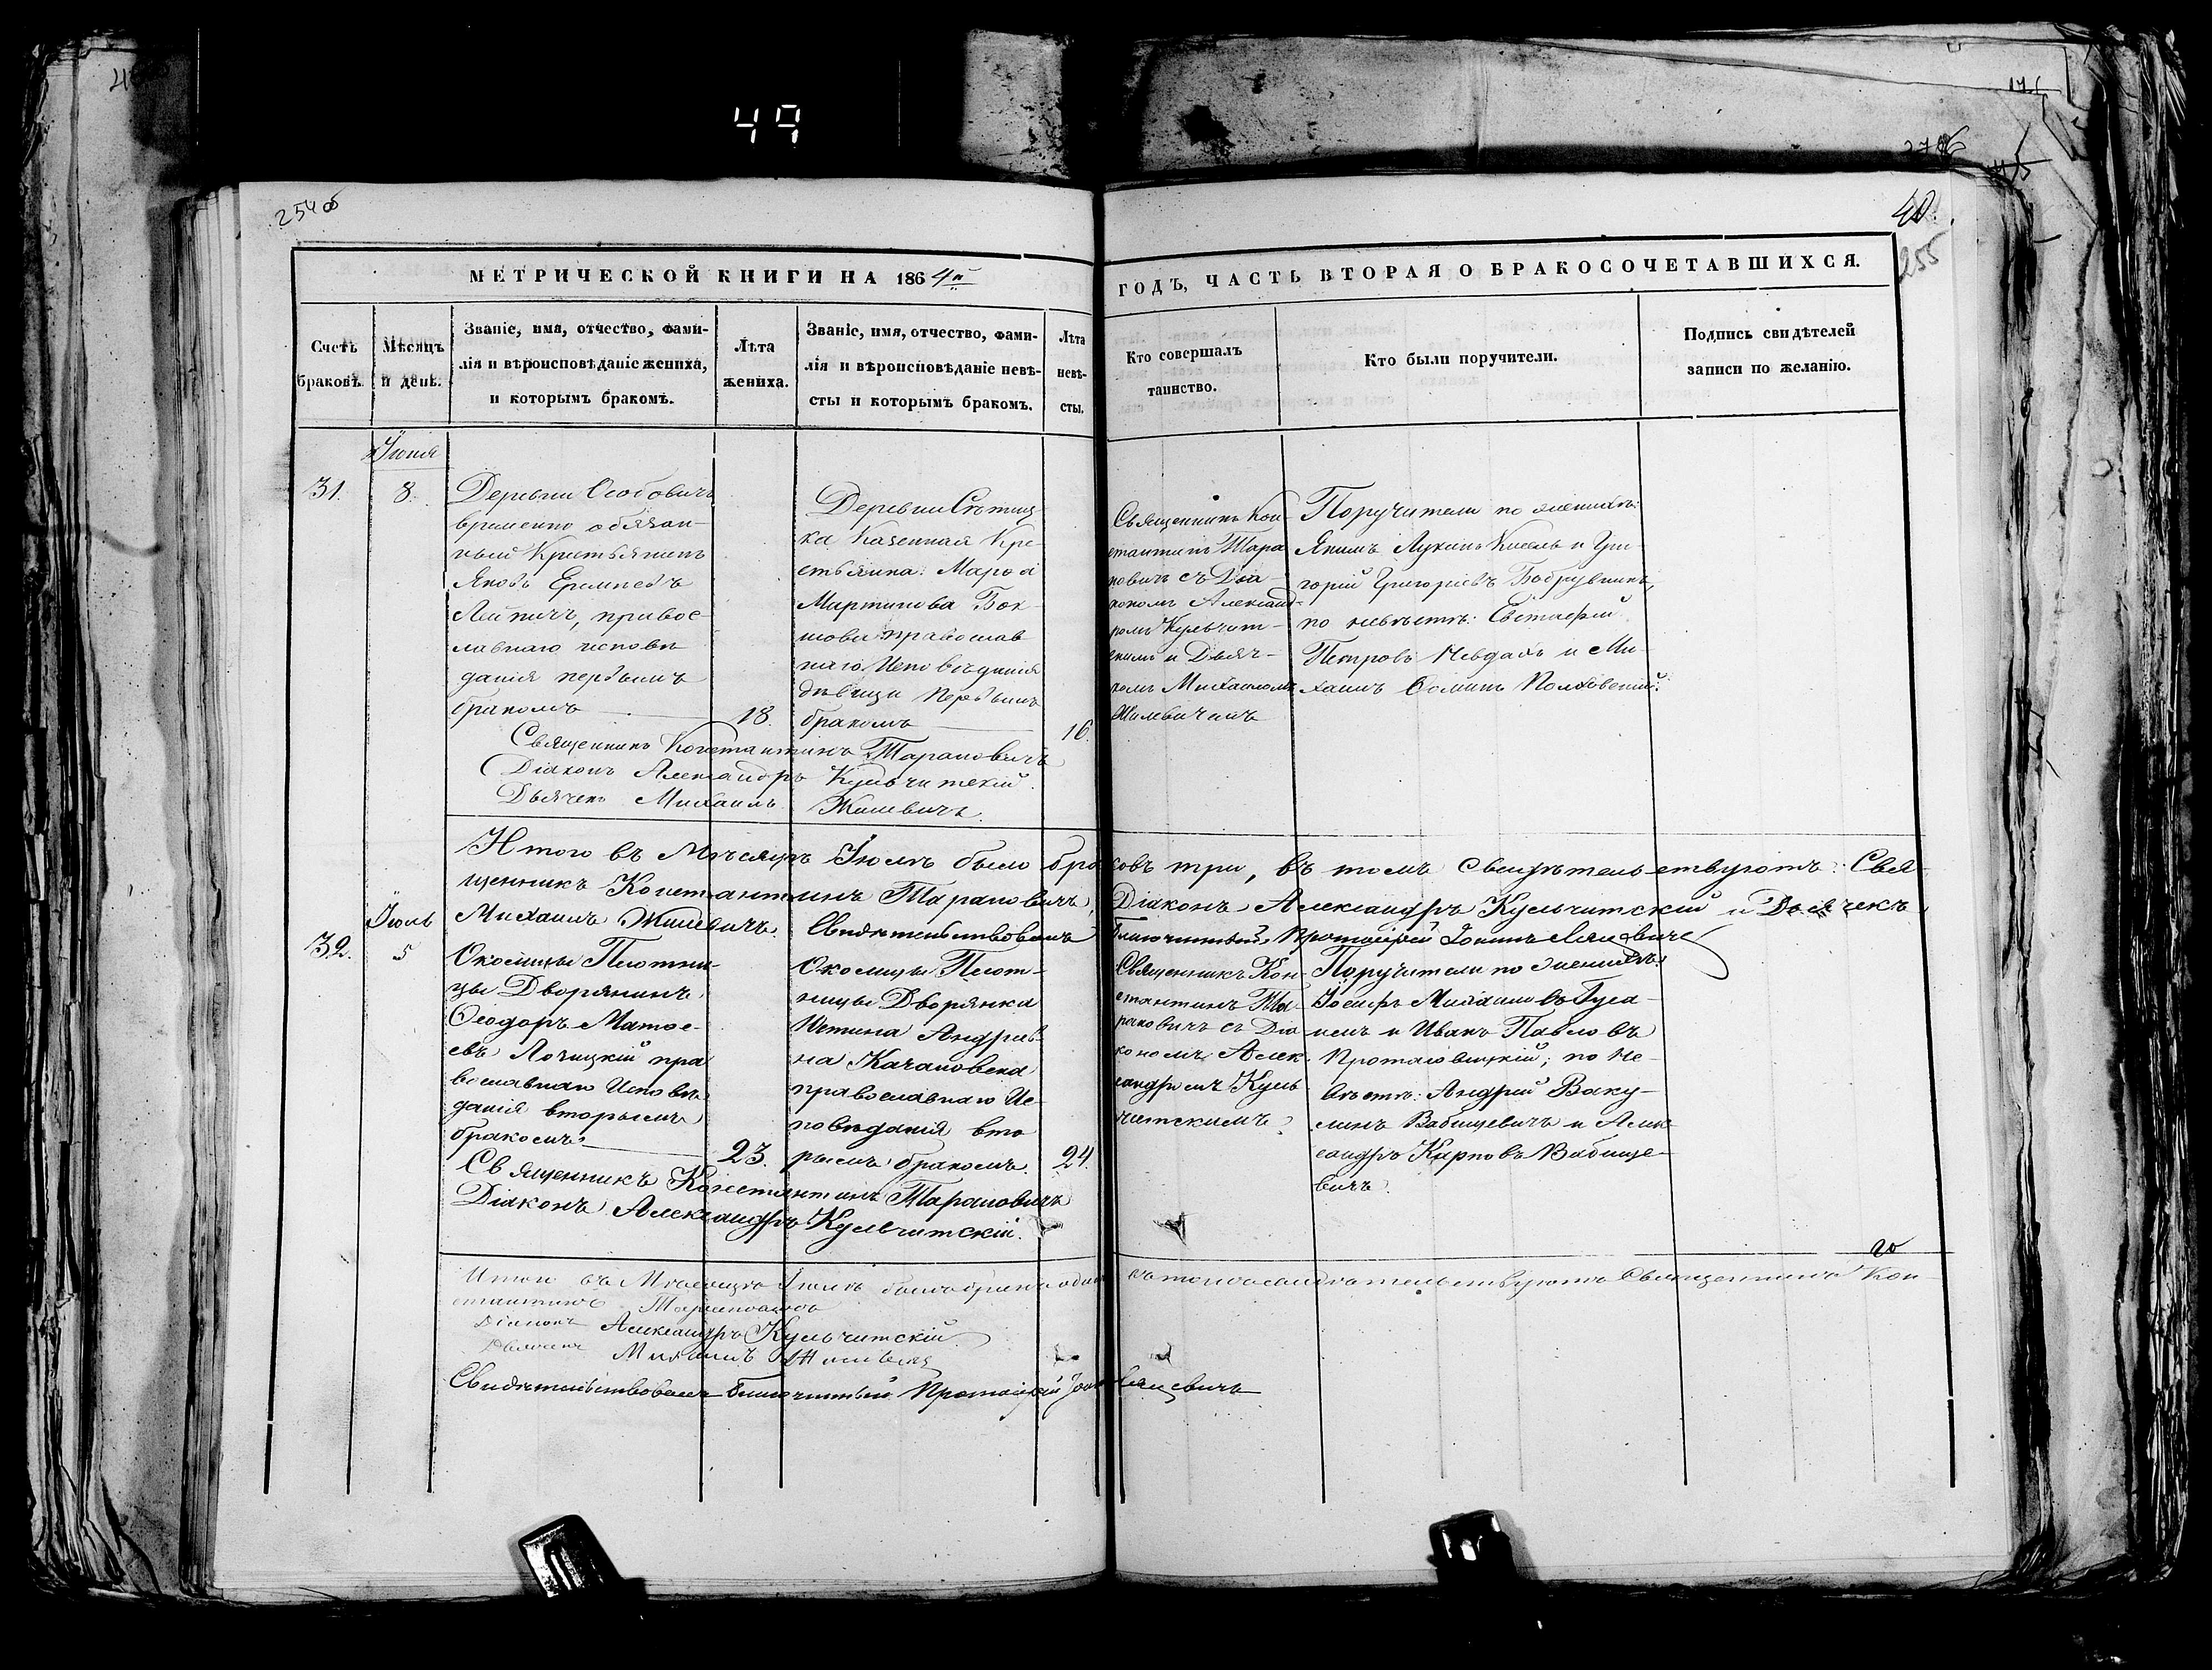 49
254 об
40.
255
МЕТРИЧЕСКОЙ КНИГИ НА 1864й
ГОДЪ, ЧАСТЬ ВТОРАЯ О БРАКОСОЧЕТАВШИХСЯ.
Счетъ
браковъ.
Мѣсяцъ
и день.
Званіе, имя, отчество, фами-
лія и вѣроисповѣданіе жениха,
и которымъ бракомъ.
Лѣта
жениха.
Званіе, имя, отчество, фами-
лія и вѣроисповѣданіе невѣ-
сты и которымъ бракомъ.
Лѣта
невѣ-
сты.
Кто совершалъ
таинство.
Кто были поручители.
Подпись свидѣтелей
записи по желанію.
Іюня
31.
8.
Деревни Особовичъ
временно обязан-
ный Крестьянинъ
Яковъ
православ-
лавнаго исповѣ-
данія первымъ
бракомъ
18.
Деревни
ка Казенная Кре-
стьянка:
Мартинова
православ
наго Исповѣданія
дѣвица первымъ
бракомъ
16.
Священникъ Кон-
стантинъ Тара
новичъ съ Діа-
кономъ Александ-
ромъ Кульчит-
скимъ и Дьяч-
комъ Михаиломъ
Жилевичемъ
Поручители по женихѣ:
Якимъ Лукинъ Кисель и Гри-
горій Григоріевъ Бобрувникъ,
по невѣстѣ: Евстафій
Петровъ и Ми-
хаилъ Ѳоминъ Полховскій.
Священникъ Константинъ Тарановичъ
Діаконъ Александръ Кульчитскій
Дьячекъ Михаилъ Жилевичъ.
Итого въ Мѣсяцѣ Іюнѣ было браковъ три, въ томъ свидѣтельствуютъ: Свя-
щенникъ Константинъ Тарановичъ, Діаконъ Александръ Кульчитскій и Дьячекъ
Михаилъ Жилевичъ. Свидѣтельствовалъ Благочинный Протоіерей Іоаннъ
Іюль
32.
5
Околицы Плотни-
цы Дворянинъ
Ѳеодоръ Матѳе-
евъ Лочицкій пра
вославнаго Исповѣ
данія вторымъ
бракомъ
23.
Околицы Плот-
ницы Дворянка
Устина Андрѣе-
на Качановска
православнаго Ис-
повѣданія вто
рымъ бракомъ.
24.
Священникъ Кон-
стантинъ Та-
рановичъ съ Діа-
кономъ Алек-
сандромъ Куль
читскимъ.
Поручители по женихѣ:
Іосифъ Михаиловъ
и Иванъ Павловъ
Протасовицкій; по не-
вѣстѣ: Андрей Ваку-
линъ Вабищевичъ и Алек
сандръ Карповъ Вабище-
вичъ.
Священникъ Константинъ Тарановичъ
Діаконъ Александръ Кульчитскій.
Итого въ Мѣсяцѣ Іюлѣ было бракъ одинъ въ томъ свидѣтельствуютъ Священникъ Кон-
стантинъ Тарановичъ
Діаконъ Александръ Кульчитскій
Дьячекъ Михаилъ Жилевичъ
Свидѣтельствовалъ Благочинный Протоіерей